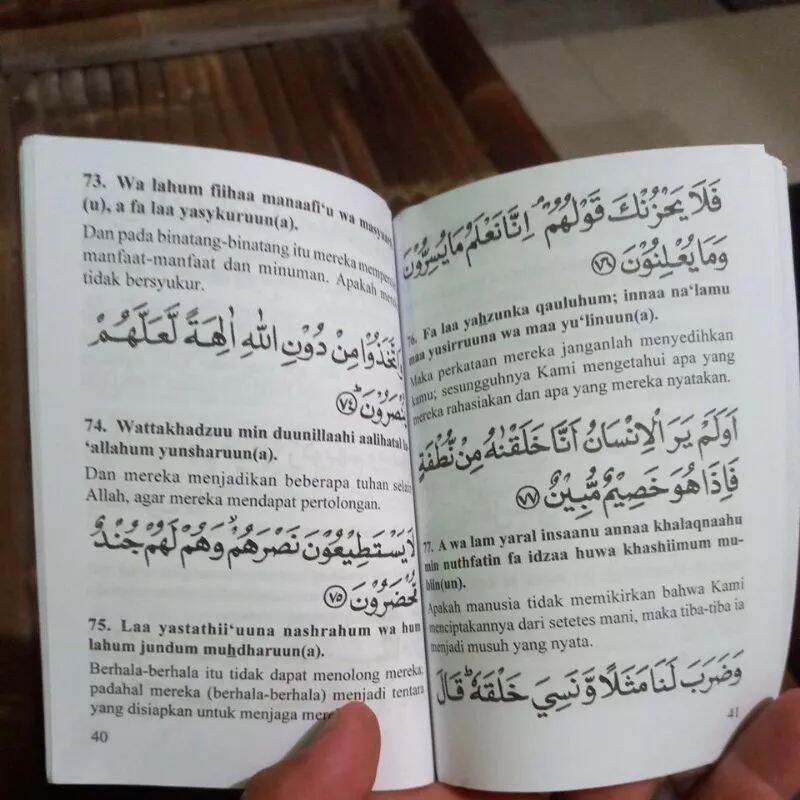 73. Wa lahum fiihaa manaafi‘u wa
(u), a fa laa yasykuruun(a).
Dan pada binatang-binatang itu mereka
manfaat-manfaat dan minuman. Apakah
tidak bersyukur.
وَاتَّخَذُوْا مِنْ دُوْنِ اللّٰهِ اٰلِهَةً لَّعَلَّهُمْ
يُنْصَرُوْنَ ۗ ٧٤
74. Wattakhadzuu min duunillaahi aalihatal la
‘allahum yunsharuun(a).
Dan mereka menjadikan beberapa tuhan selain
Allah, agar mereka mendapat pertolongan.
لَا يَسْتَطِيْعُوْنَ نَصْرَهُمْۙ وَهُمْ لَهُمْ جُنْدٌ
مُّحْضَرُوْنَ ٧٥
75. Laa yastathii‘uuna nashrahum wa hum
lahum jundum muhdharuun(a).
Berhala-berhala itu tidak dapat menolong mereka,
padahal mereka (berhala-berhala) menjadi tentara
yang disiapkan untuk menjaga
40
فَلَا يَحْزُنْكَ قَوْلُهُمْ ۘ اِنَّا نَعْلَمُ مَا يُسِرُّوْنَ
وَمَا يُعْلِنُوْنَ ٧٦
76. Fa laa yahzunka qauluhum; innaa na‘lamu
maa yusirruuna wa maa yu‘linuun(a).
Maka perkataan mereka janganlah menyedihkan
kamu; sesungguhnya Kami mengetahui apa yang
mereka rahasiakan dan apa yang mereka nyatakan.
اَوَلَمْ يَرَ الْاِنْسَانُ اَنَّا خَلَقْنٰهُ مِنْ نُّطْفَةٍ
فَاِذَا هُوَ خَصِيْمٌ مُّبِيْنٌ ٧٧
77. A wa lam yaral insaanu annaa khalaqnaahu
min nuthfatin fa idzaa huwa khashiimum mu-
biin(un).
Apakah manusia tidak memikirkan bahwa Kami
menciptakannya dari setetes mani, maka tiba-tiba ia
menjadi musuh yang nyata.
وَضَرَبَ لَنَا مَثَلًا وَّنَسِيَ خَلْقَهٗۗ قَالَ
41